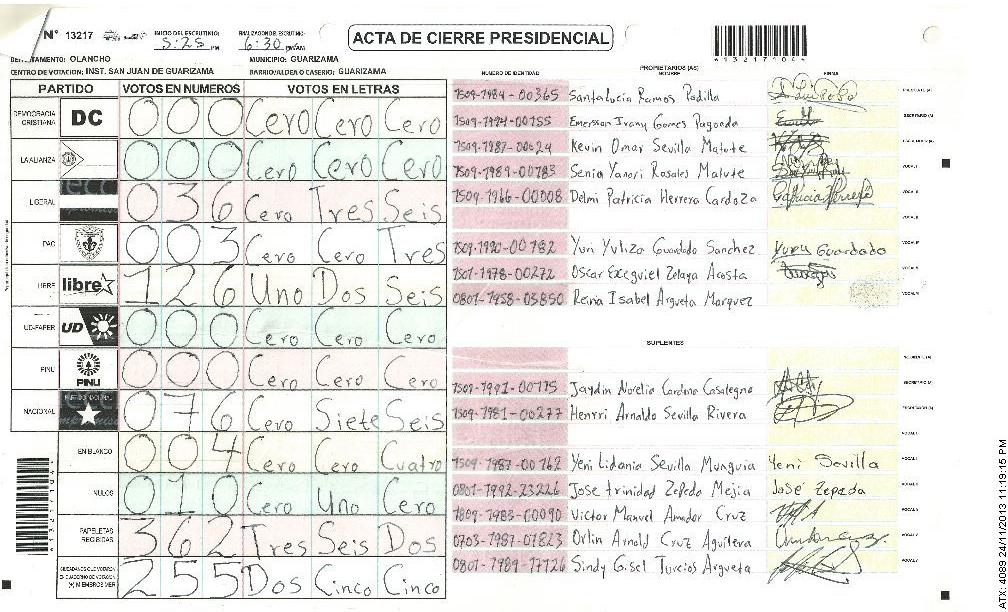 N° 13217
INICIO DEL ESCRUTINIO:
5:25 PM
6:30 PM/AM
ACTA DE CIERRE PRESIDENCIAL
DEPARTAMENTO: OLANCHO
MUNICIPIO: GUARIZAMA
CENTRO DE VOTACION: INST. SAN JUAN DE GUARIZAMA
BARRIO/ALDEA O CASERIO: GUARIZAMA
PARTIDO VOTOS EN NUMEROS VOTOS EN LETRAS
DEMOCRACIA CRISTIANA DC 000 Cero Cero Cero
LA ALIANZA 000 Cero Cero Cero
LIBERAL 036 Cero Tres Seis
PAC 003 Cero Cero Tres
LIBRE libre 126 Uno Dos Seis
UD-FAPER UD 000 Cero Cero Cero
PINU PINU 000 Cero Cero Cero
NACIONAL 076 Cero Siete Seis
EN BLANCO 004 Cero Cero Cuatro
NULOS 010 Cero Uno Cero
PAPELETAS RECIBIDAS 362 Tres Seis Dos
255 Dos Cinco Cinco
PROPIETARIOS (AS)
NUMERO DE IDENTIDAD NOMBRE FIRMA
1509-1984-00365 Santa Lucia Ramos Padilla
1509-1994-00155 Emerson Irany Gomes Pagoeda
1509-1987-00624 Kevin Omar Sevilla Matute
1509-1989-00783 Senia Yanori Rosales Matute
1509-1966-00008 Delmi Patricia Herrera Cardoza
1509-1990-00782 Yuri Yuliza Guardado Sanchez Yury Guardado
1501-1978-00272 Oscar Exequiel Zelaya Acosta
0801-1958-05850 Reina Isabel Argueta Marquez
SUPLENTES
1509-1991-00775 Jaydin Norelio Cardona Casalegno
1509-1981-00277 Henrri Arnaldo Sevilla Rivera
1509-1987-00162 Yeni Lidania Sevilla Munguia Yeni Sevilla
0801-1992-23226 Jose trinidad Zepeda Mejia José Zepeda
1809-1983-00090 Victor Manuel Amador Cruz
0703-1987-01823 Orlin Arnold Cruz Aguilera
0801-1989-17726 Sindy Gisel Turcios Argueta
ATX: 4089 24/11/2013 11:19:15 PM